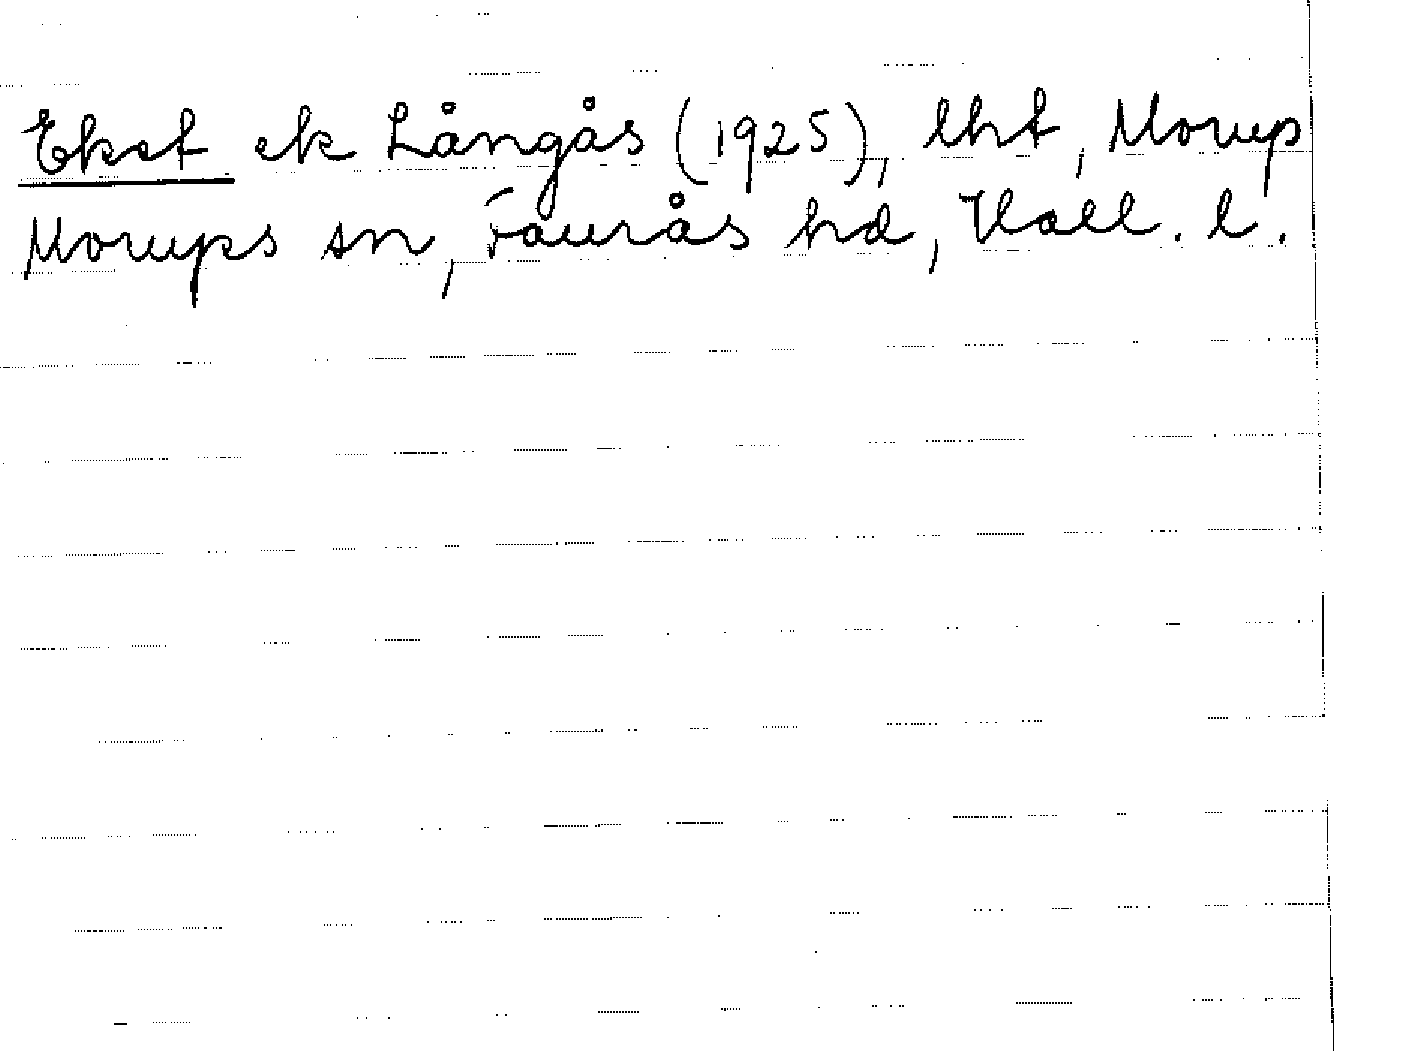 Ekst ek Långås (1925), lht, Morup
Morups sn, Faurås hd, Hall. l.